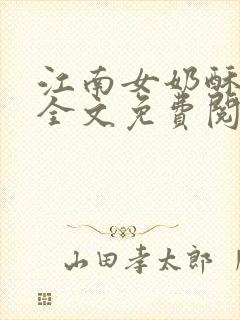 江南女奶酥
全文免費閱
山田孝太郎